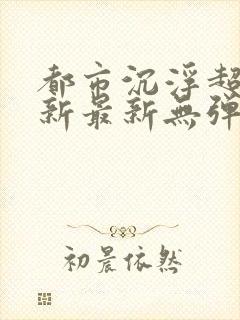 都市沉浮超
新最新無彈
初晨依然